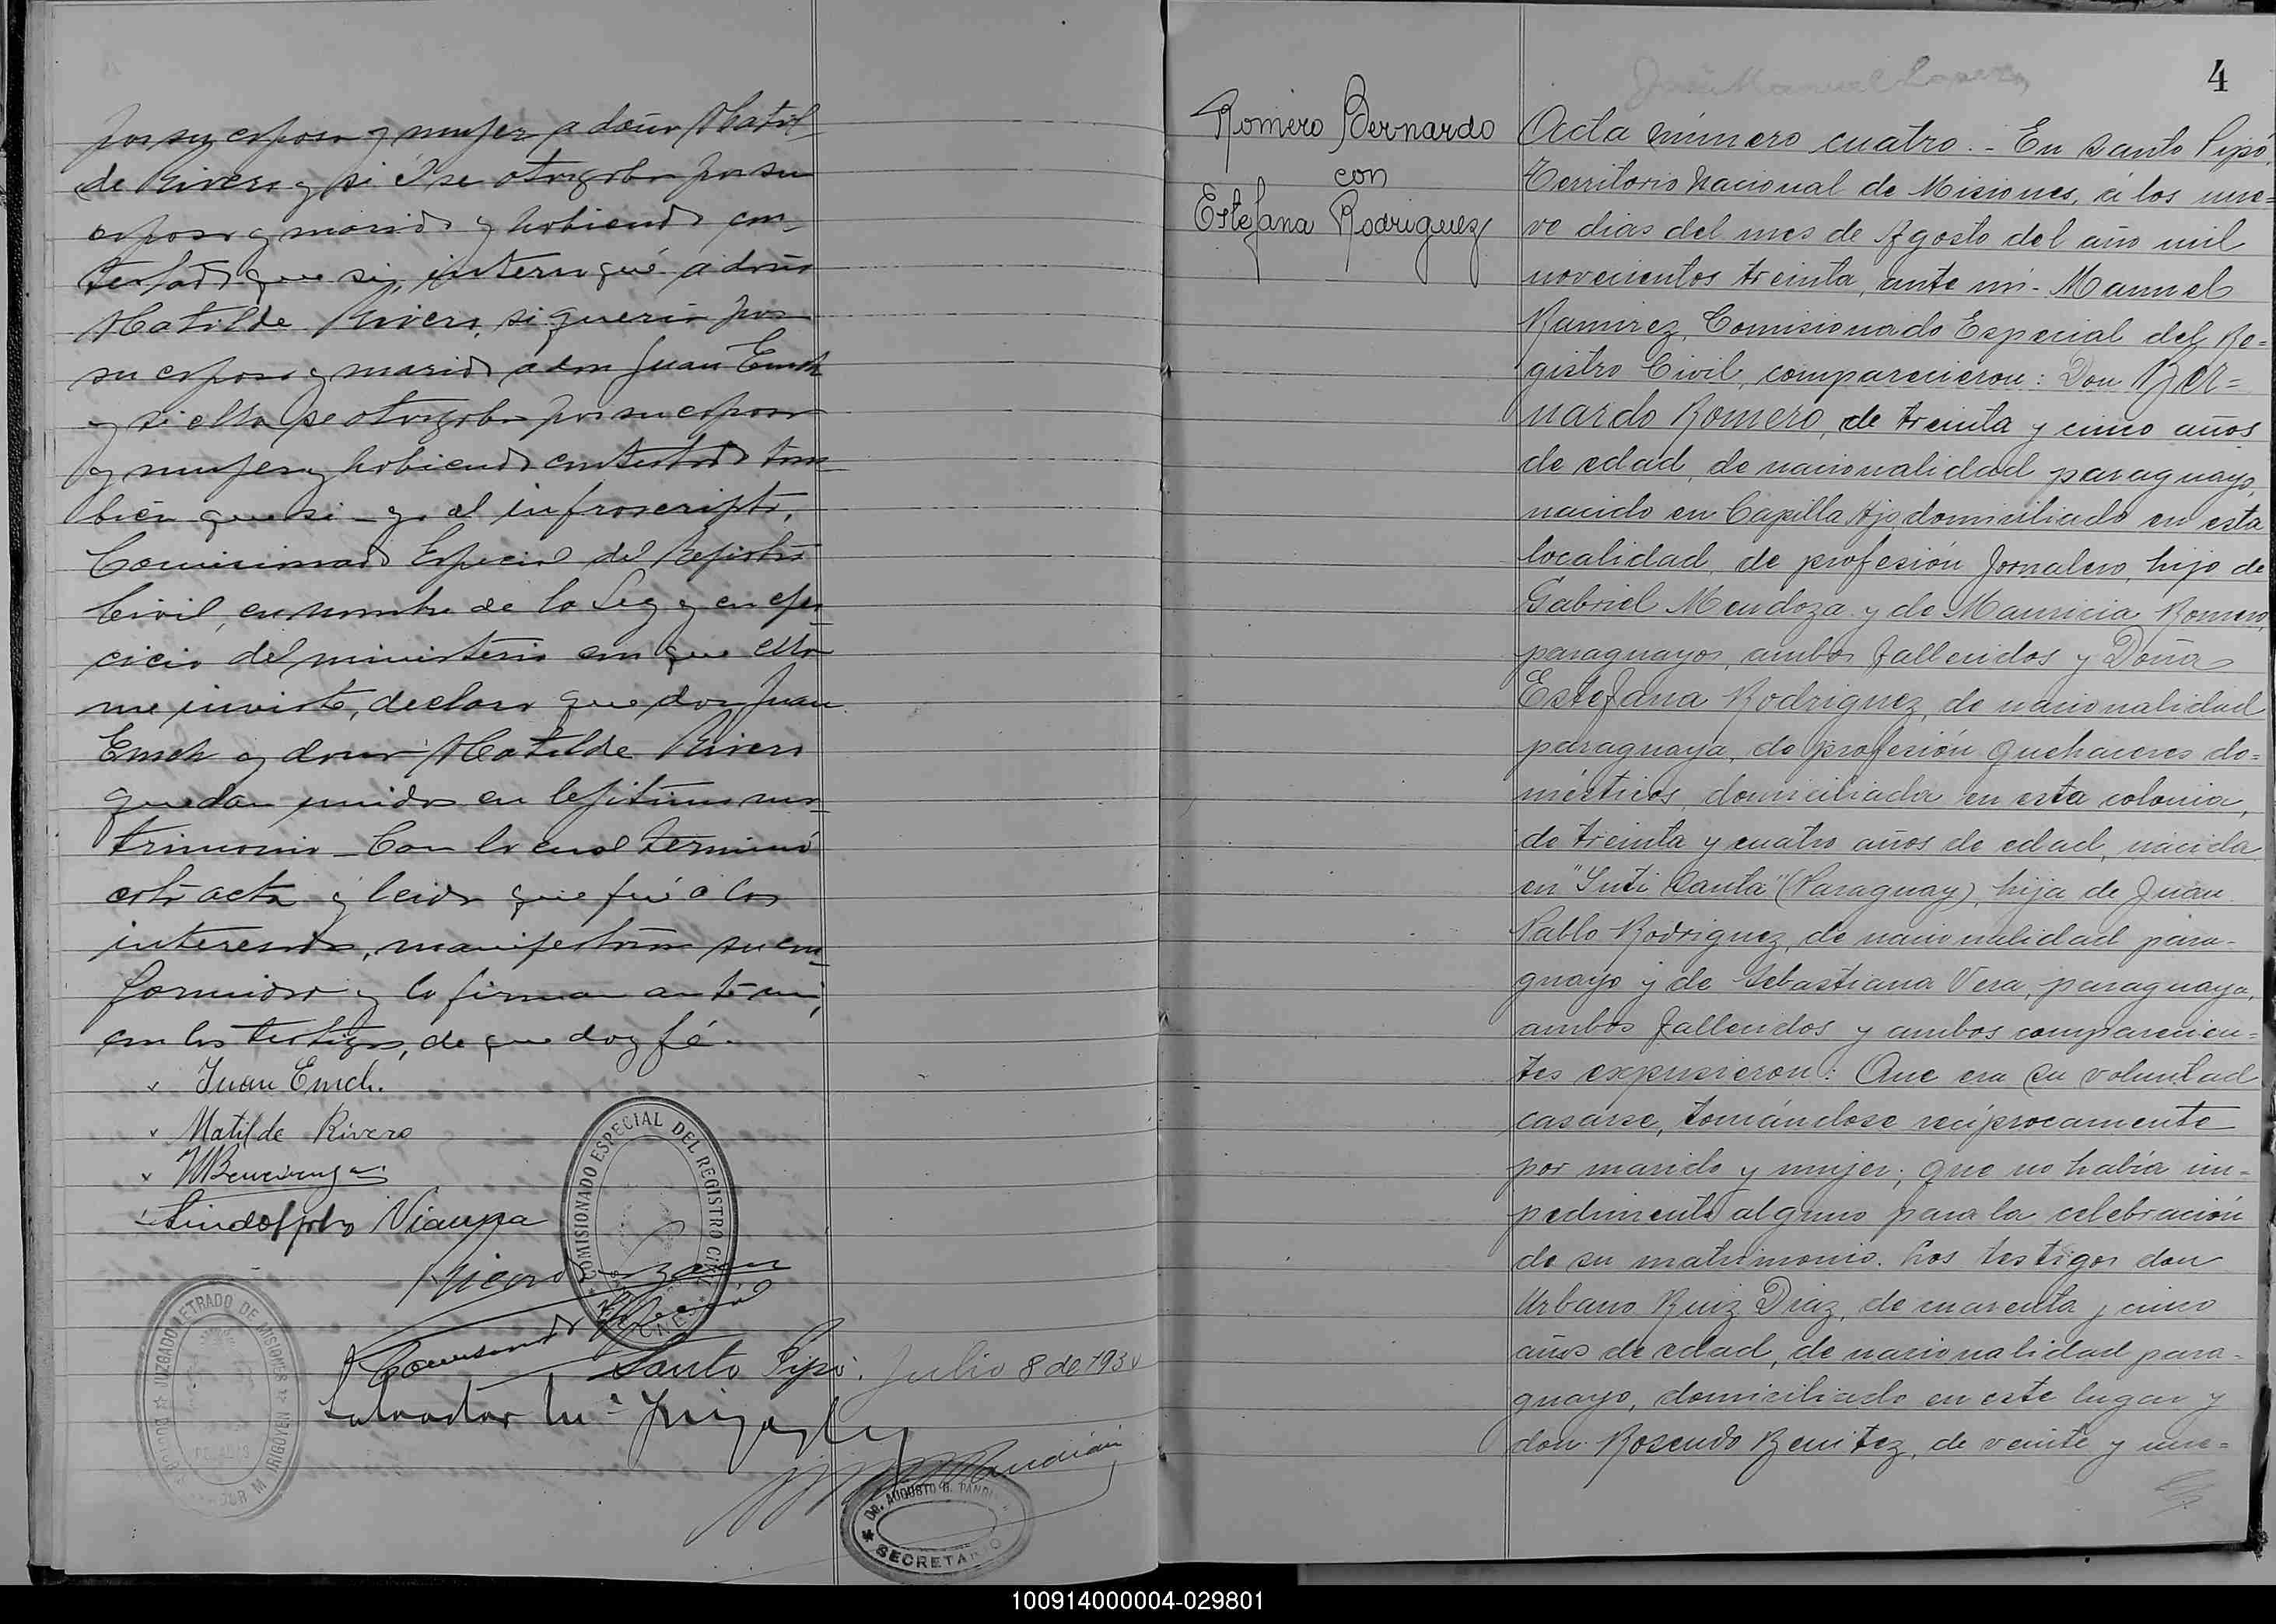 por su esposa y mujer a doña Matil-
de Rivero y si él se otorgaba por su
esposo y marido y habiendo con-
testado que si, interrogué a doña
Matilde Rivero, si queria por
su esposo y marido a don Juan Emch
y si ella se otorgaba por su esposa
y mujer y habiendo contestado tam-
bién que si - yo el infrascripto,
Comisionado Especial del Registro
Civil, en nombre de la Ley y en ejer-
cicio del ministerio con que ella
me inviste, declaro que don Juan
Emch y doña Matilde Rivero
quedan unidos en lejitimo ma-
trimonio - Con lo cual terminó
esta acta y leida que fué a los
interesados, manifestaron su con-
formidad y la firman ante mi,
con los testigos, de que doy fé.
Juan Emch.
Matilde Rivero
Lindolfo Vianna
COMISIONADO ESPECIAL DEL REGISTRO CIVIL
MISIONES
Santo Pipó. Julio 8 de 1930
JUZGADO LETRADO DE MISIONES
M. IRIGOYEN
Salvador M.ª Irigoyen
DR. AUGUSTO G.
SECRETARIO
4
Romero Bernardo
con
Estefana Rodriguez
Acta número cuatro. - En Santo Pipó,
Territorio Nacional de Misiones, á los nue=
ve dias del mes de Agosto del año mil
novecientos treinta, ante mi - Manuel
Ramirez, Comisionado Especial del Re=
gistro Civil, comparecieron: Don Ber=
nardo Romero, de treinta y cinco años
de edad, de nacionalidad paraguayo,
nacido en Capilla Ajo, domiciliado en esta
localidad, de profesión Jornalero, hijo de
Gabriel Mendoza y de Mauricia Romero,
paraguayos, ambos fallecidos y Doña
Estefana Rodriguez, de nacionalidad
paraguaya, de profesión quehaceres do=
mésticos, domiciliada en esta colonia,
de treinta y cuatro años de edad, nacida
en "Yuti Canta" (Paraguay), hija de Juan
Pablo Rodriguez, de nacionalidad para-
guayo y de Sebastiana Vera, paraguaya,
ambos fallecidos y ambos comparecien=
tes expusieron: Que era su voluntad
casarse, tomándose recíprocamente
por marido y mujer; que no había im-
pedimento alguno para la celebración
de su matrimonio. Los testigos don
Urbano Ruiz Diaz, de cuarenta y cinco
años de edad, de nacionalidad para-
guayo, domiciliado en este lugar y
don Rosendo Benitez, de veinte y nue=
100914000004-029801